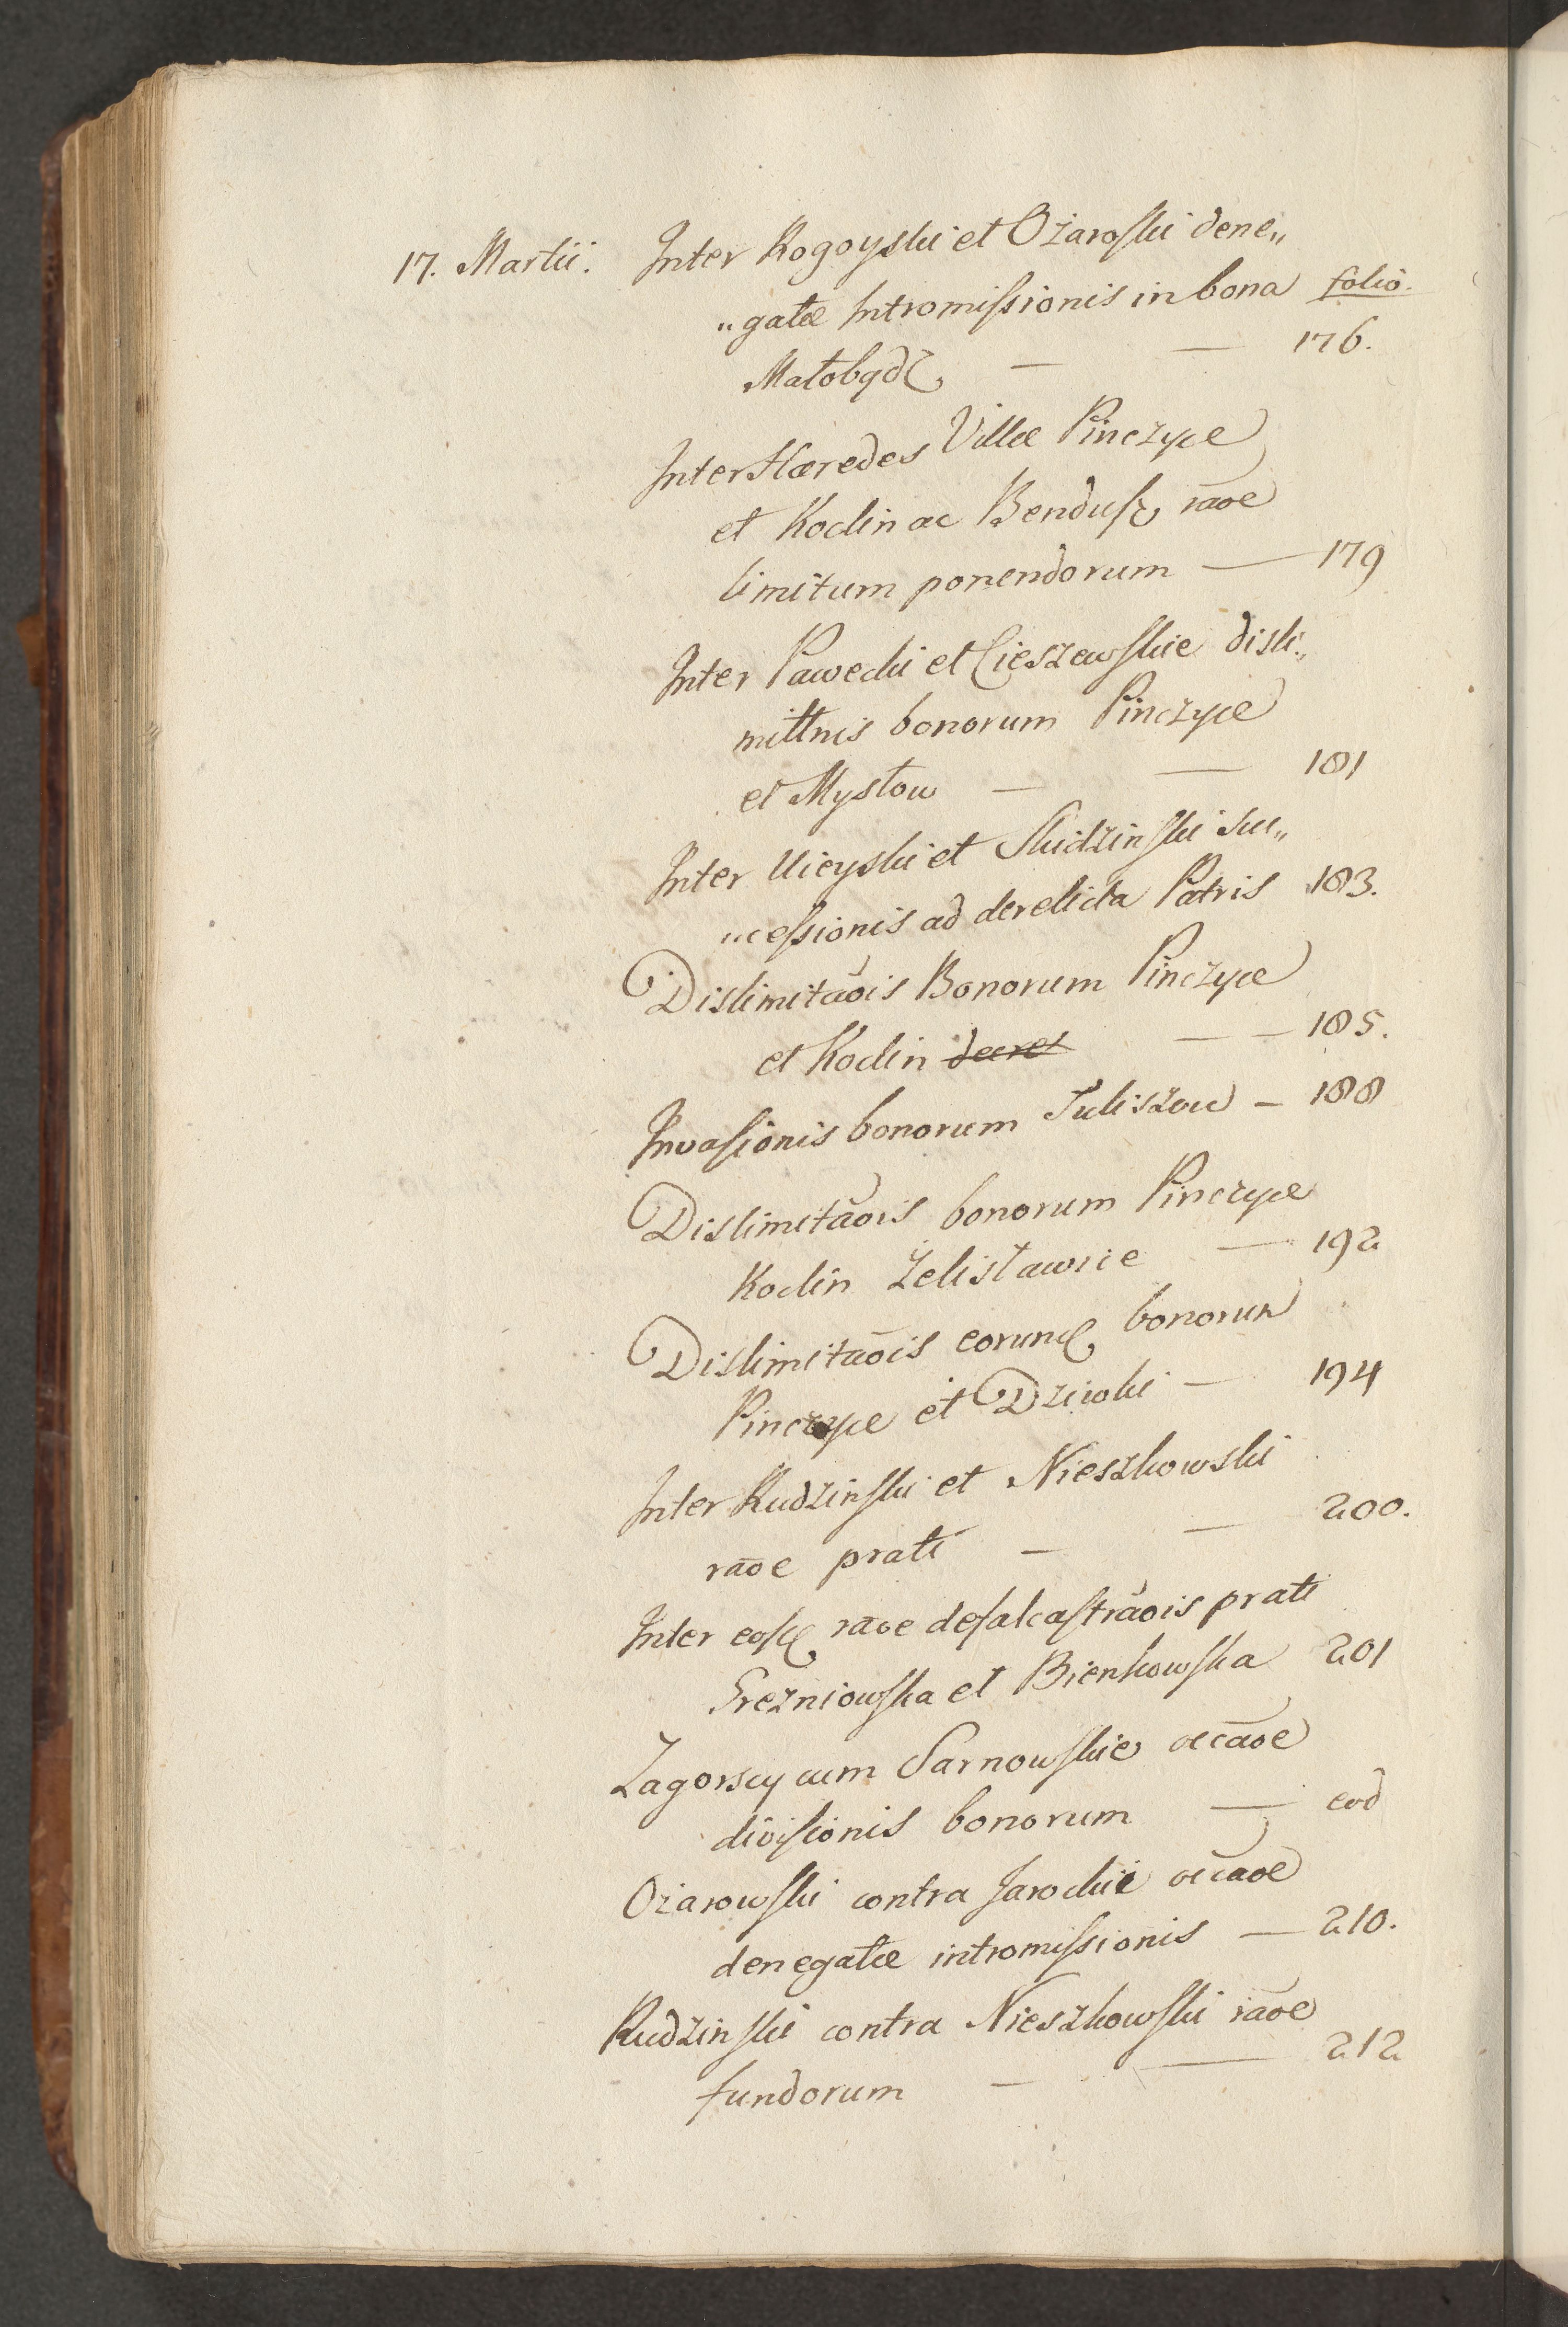 17. Martii. Inter Rogoyski et Ożaroſki dene„
„gatæ Intromiſsionis in bona folio.
Małobądz — — 176.
Inter Hæredes Villæ Pinczyce
et Koclin ac Benduſz rāoe
limitum ponendorum — 179
Inter Pawecki et Cieszewſkie disli„
mittnis bonorum Pinczyce
et Mysłow — — 181
Inter Uieyski et Skidzinſki suc„
„ceſsionis ad derelicta Patris 183.
Dislimitāois Bonorum Pinczyce
et Koclin decret — — 185.
Invaſionis bonorum Suliszow — 188
Dislimitāois bonorum Pinczyce
Koclin Zelisławice — 192
Dislimitāois eorund bonorum
Pinczyce et Dziwki — 194
Inter Rudzinſki et Nieszkowski
rāoe prati — — 200.
Inter eoſd rāoe defalcaſtrāois prati
Grezniowſka et Bienkowſka 201
Zagorscy cum Sarnowſkie occāoe
diviſionis bonorum — eod
Ożarowſki contra Jarockie occāoe
denegatæ intromiſsionis — 210.
Rudzinſki contra Nieszkowſki rāoe
fundorum — — 212